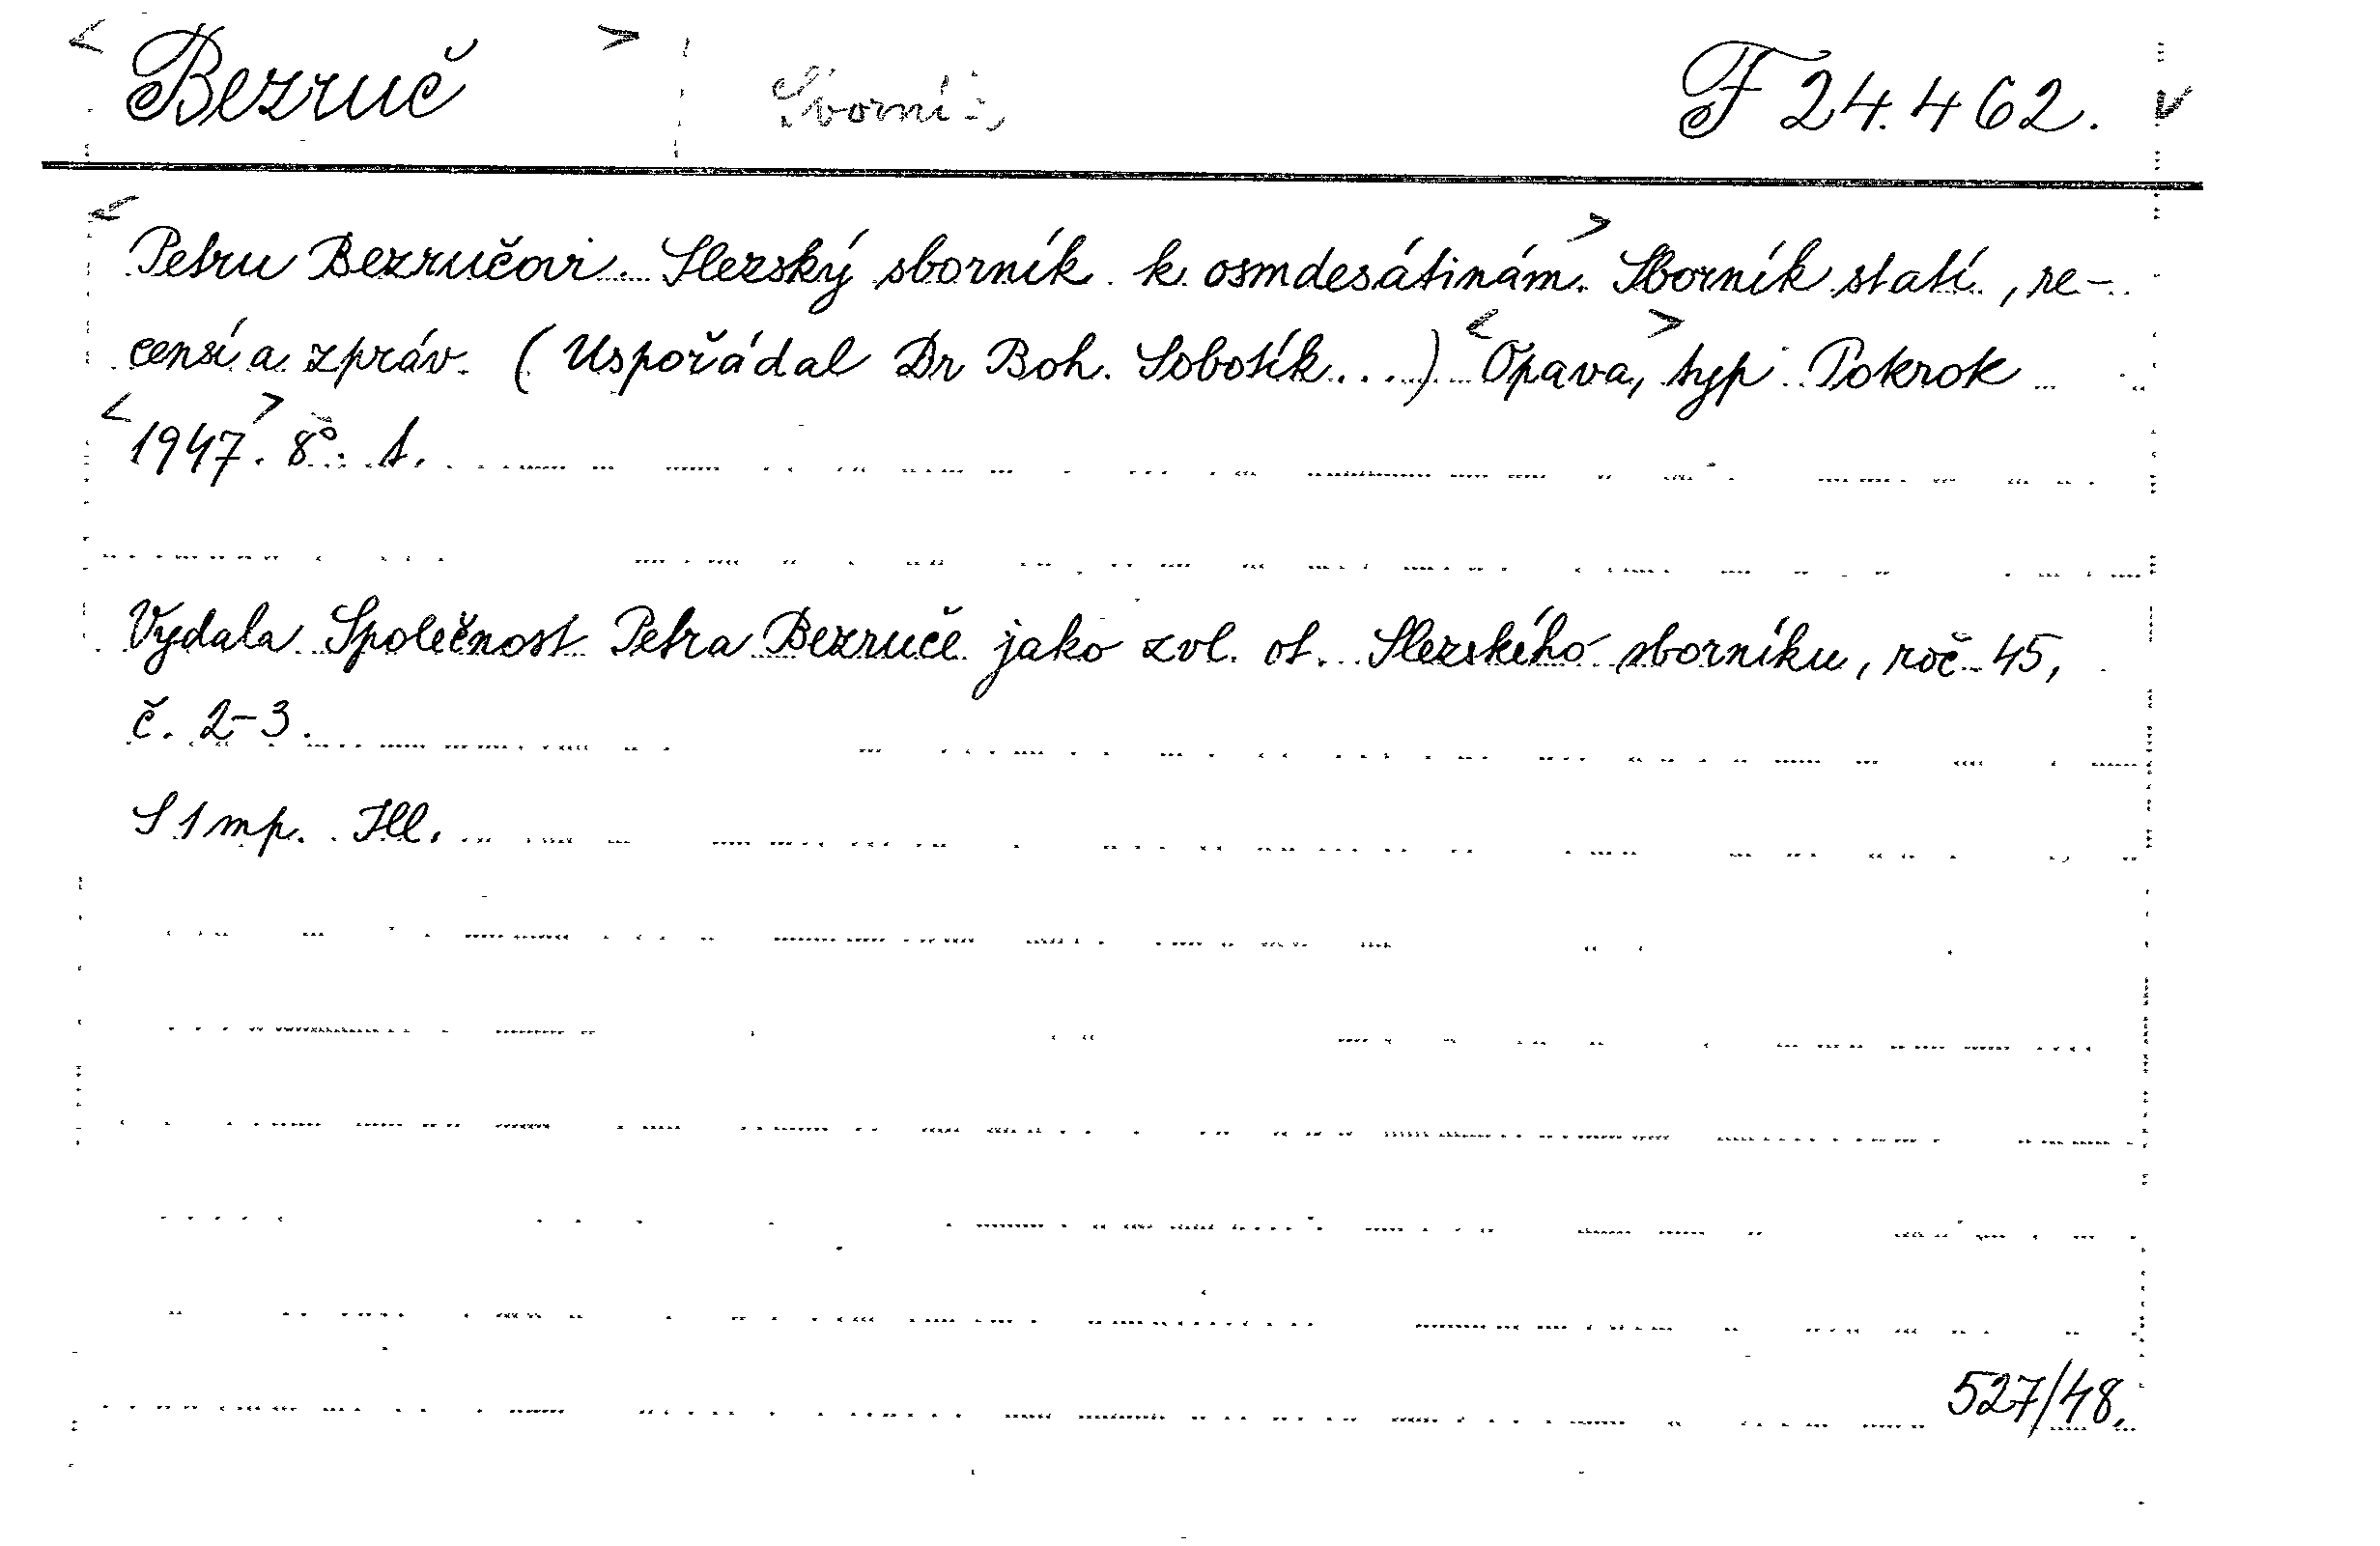 < Bezruč > F 24.462. v
< Petru Bezručovi. Slezský sborník k osmdesátinám. > Sborník statí, re-
censí a zpráv. (Uspořádal Dr Boh. Sobotík....) < Opava, > typ Pokrok
< 1947. > 8°. 1.
Vydala Společnost Petra Bezruče jako zvl. ot. Slezského sborníku, roč 45,
č. 2-3.
S 1 mp. Ill.
527/48.